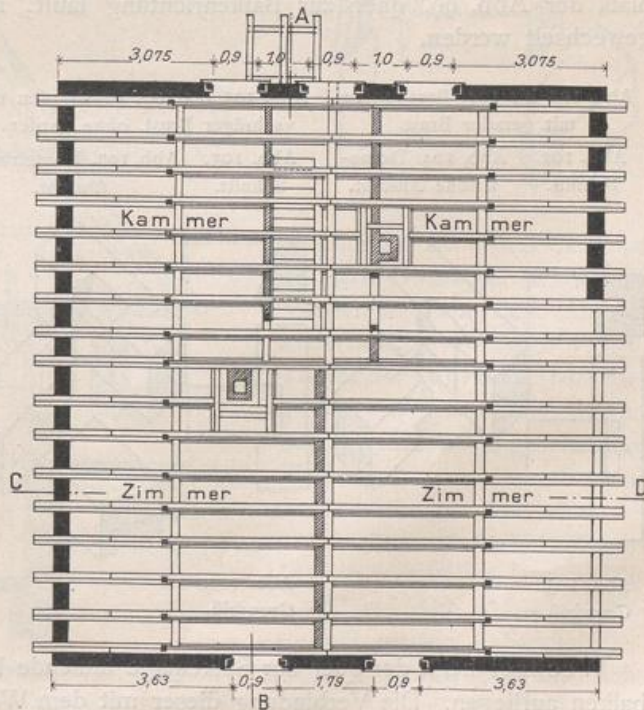 A
3,075 0,9 1,0 0,9 1,0 0,9 3,075
Kammer Kammer
C Zimmer Zimmer D
3,63 0,9 1,79 0,9 3,63
B